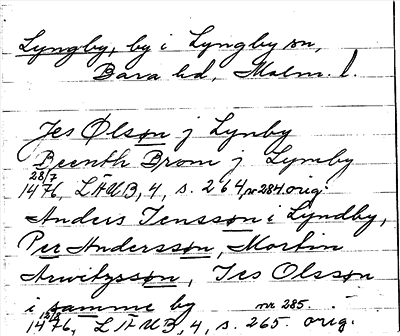 Lyngby, by i Lyngby sn,
Bara hd, Malm. l.
Jes Ølson j Lynby
Beenth Brom j Lymby
28/7
1476, LÄUB, 4, s. 264, nr 284. orig.
Anders Jensson i Lyndby,
Per Andersson, Morten
Arwetzson, Jes Olsson
i samme by nr 285.
1476, LÄUB, 4, s. 265. orig.